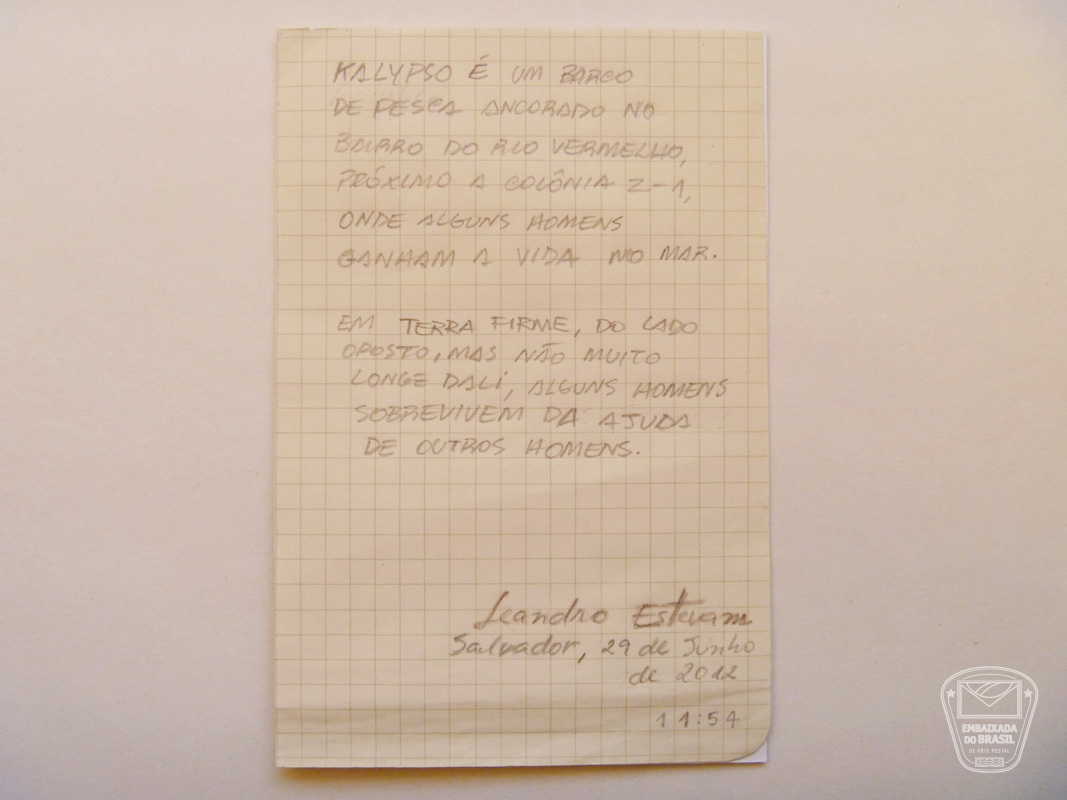 KALYPSO É UM BARCO
DE PESCA ANCORADO NO
BAIRRO DO RIO VERMELHO,
PRÓXIMO A COLÔNIA Z-1,
ONDE ALGUNS HOMENS
GANHAM A VIDA NO MAR.
EM TERRA FIRME, DO LADO
OPOSTO, MAS NÃO MUITO
LONGE DALI, ALGUNS HOMENS
SOBREVIVEM DA AJUDA
DE OUTROS HOMENS.
Leandro Estevam
Salvador, 29 de Junho
de 2012
11:54
EMBAIXADA
DO BRASIL
DE ARTE POSTAL